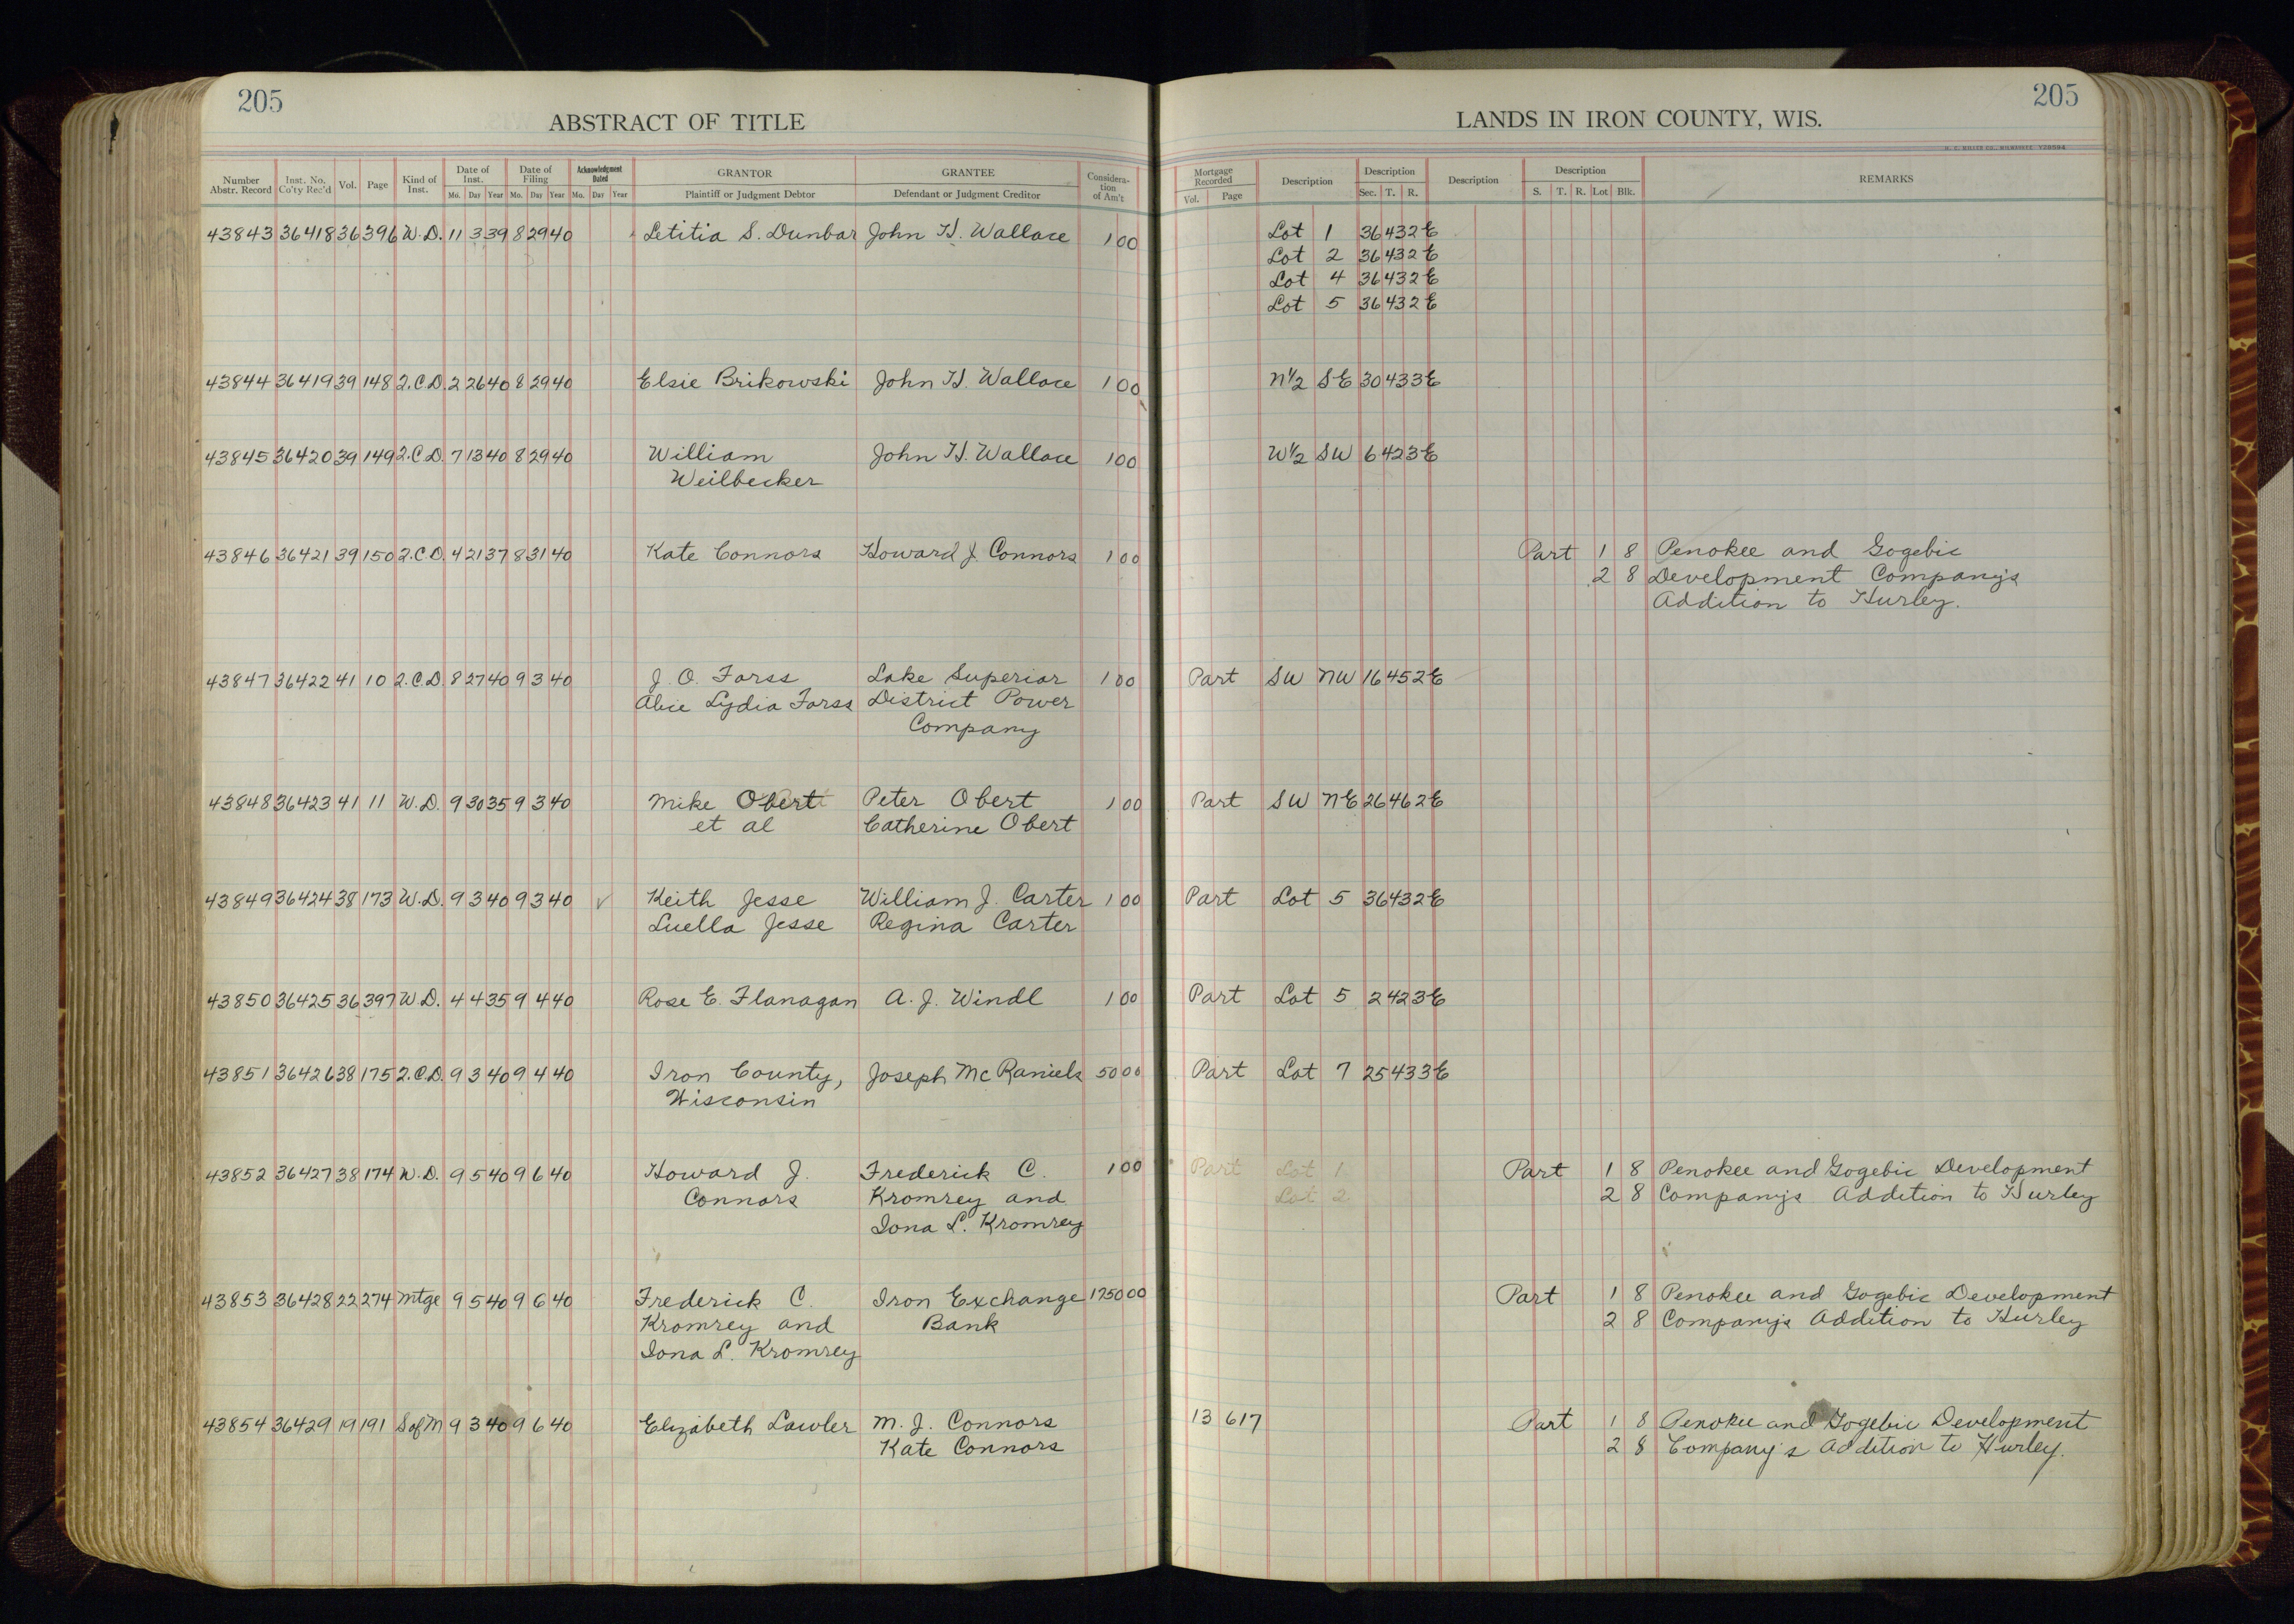 205
ABSTRACT OF TITLE
LANDS IN IRON COUNTY, WIS.
205
Number Abstr. Record | Inst. No. Co'ty Rec'd | Vol. | Page | Kind of Inst. | Date of Inst. Mo. Day Year | Date of Filing Mo. Day Year | Acknowledgment Dated Mo. Day Year | GRANTOR Plaintiff or Judgment Debtor | GRANTEE Defendant or Judgment Creditor | Consideration of Am't | Mortgage Recorded Vol. Page | Description | Description Sec. T. R. | Description | Description S. T. R. Lot Blk. | REMARKS
43843 36418 36 396 W.D. 11 3 39 8 29 40 Letitia S. Dunbar John H. Wallace 1 00 Lot 1 36 43 2 E
Lot 2 36 43 2 E
Lot 4 36 43 2 E
Lot 5 36 43 2 E
43844 36419 39 148 2.C.D. 2 26 40 8 29 40 Elsie Brikowski John H. Wallace 1 00 N½ SE 30 43 3 E
43845 36420 39 149 2.C.D. 7 13 40 8 29 40 William John H. Wallace 1 00 W½ SW 6 42 3 E
Weilbecker
43846 36421 39 150 2.C.D. 4 21 37 8 31 40 Kate Connors Howard J. Connors 1 00 Part 1 8 Penokee and Gogebic
2 8 Development Company's
Addition to Hurley.
43847 36422 41 10 2.C.D. 8 27 40 9 3 40 J. O. Farss Lake Superior 1 00 Part SW NW 16 45 2 E
Alice Lydia Farss District Power
Company
43848 36423 41 11 W.D. 9 30 35 9 3 40 Mike Obert Peter Obert 1 00 Part SW NE 26 46 2 E
et al Catherine Obert
43849 36424 38 173 W.D. 9 3 40 9 3 40 ✓ Keith Jesse William J. Carter 1 00 Part Lot 5 36 43 2 E
Luella Jesse Regina Carter
43850 36425 36 397 W.D. 4 4 35 9 4 40 Rose E. Flanagan A. J. Windl 1 00 Part Lot 5 2 42 3 E
43851 36426 38 175 2.C.D. 9 3 40 9 4 40 Iron County, Joseph McRaniels 50 00 Part Lot 7 25 43 3 E
Wisconsin
43852 36427 38 174 W.D. 9 5 40 9 6 40 Howard J. Frederick C. 1 00 Part Lot 1 Part 1 8 Penokee and Gogebic Development
Connors Kromrey and Lot 2 2 8 Company's Addition to Hurley
Iona L. Kromrey
43853 36428 22 274 Mtge 9 5 40 9 6 40 Frederick C. Iron Exchange 1750 00 Part 1 8 Penokee and Gogebic Development
Kromrey and Bank 2 8 Company's Addition to Hurley
Iona L. Kromrey
43854 36429 19 191 S of M 9 3 40 9 6 40 Elizabeth Lawler M. J. Connors 13 617 Part 1 8 Penokee and Gogebic Development
Kate Connors 2 8 Company's Addition to Hurley.